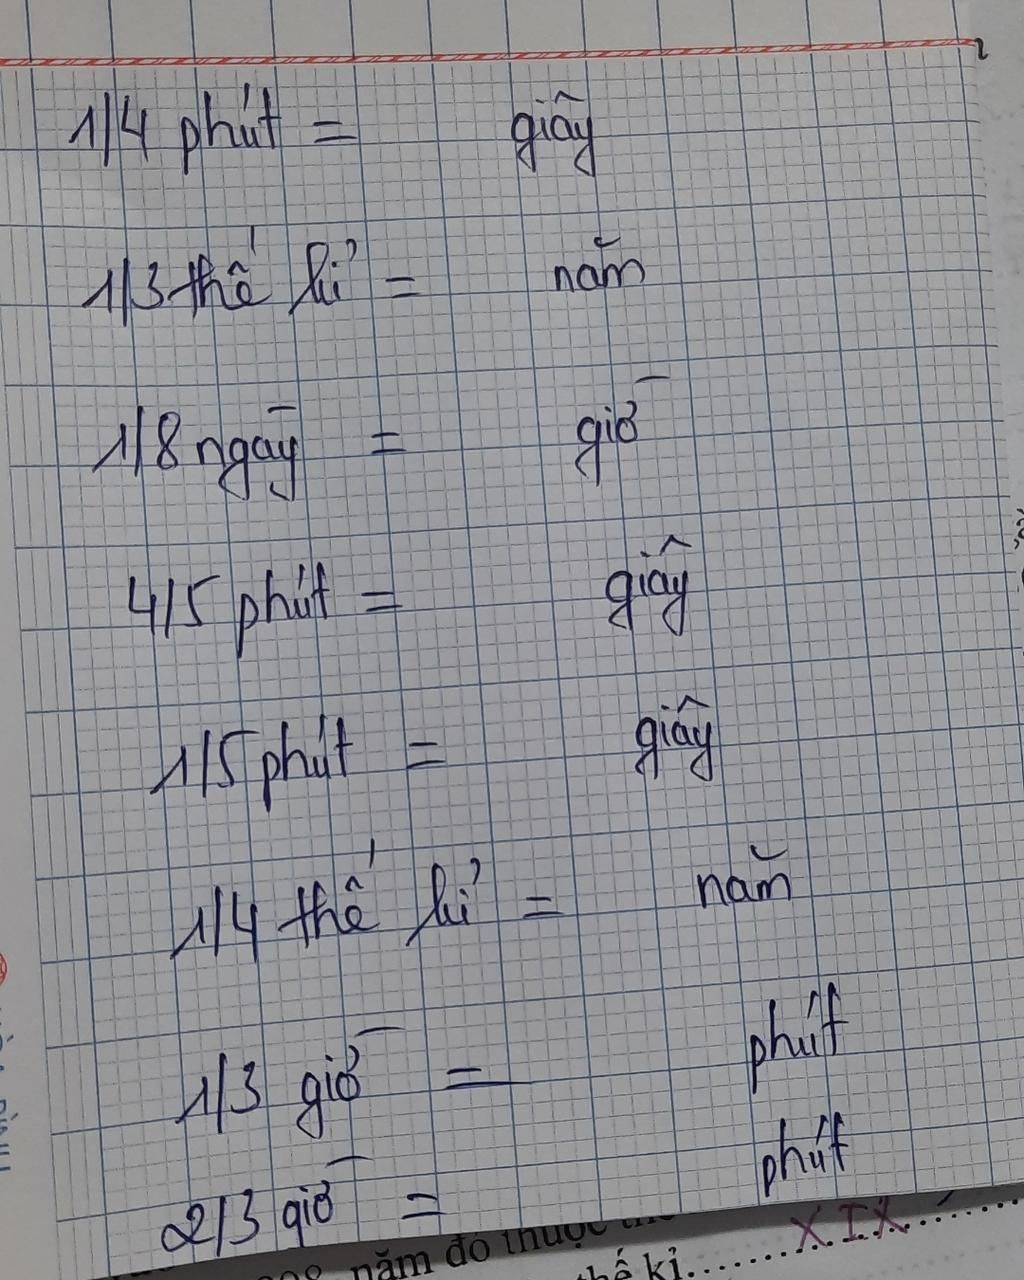 1/4 phút = giây
1/3 thế kỉ = năm
1/8 ngày = giờ
4/5 phút = giây
1/5 phút = giây
1/4 thế kỉ = năm
1/3 giờ = phút
2/3 giờ = phút
năm đó thuộc
thế kỉ.......XIX.......